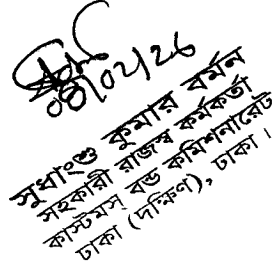 08/02/26
সুধাংশু কুমার বর্মন
সহকারী রাজস্ব কর্মকর্তা
কাস্টমস বন্ড কমিশনারেট
ঢাকা (দক্ষিণ), ঢাকা।